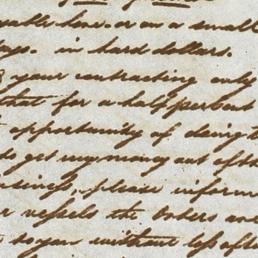 or on a small
in hard dollars.
your contracting only
that for a half per cent
opportunity of doing
get my money out of the
please inform
vessels the orders are
to you without loss of